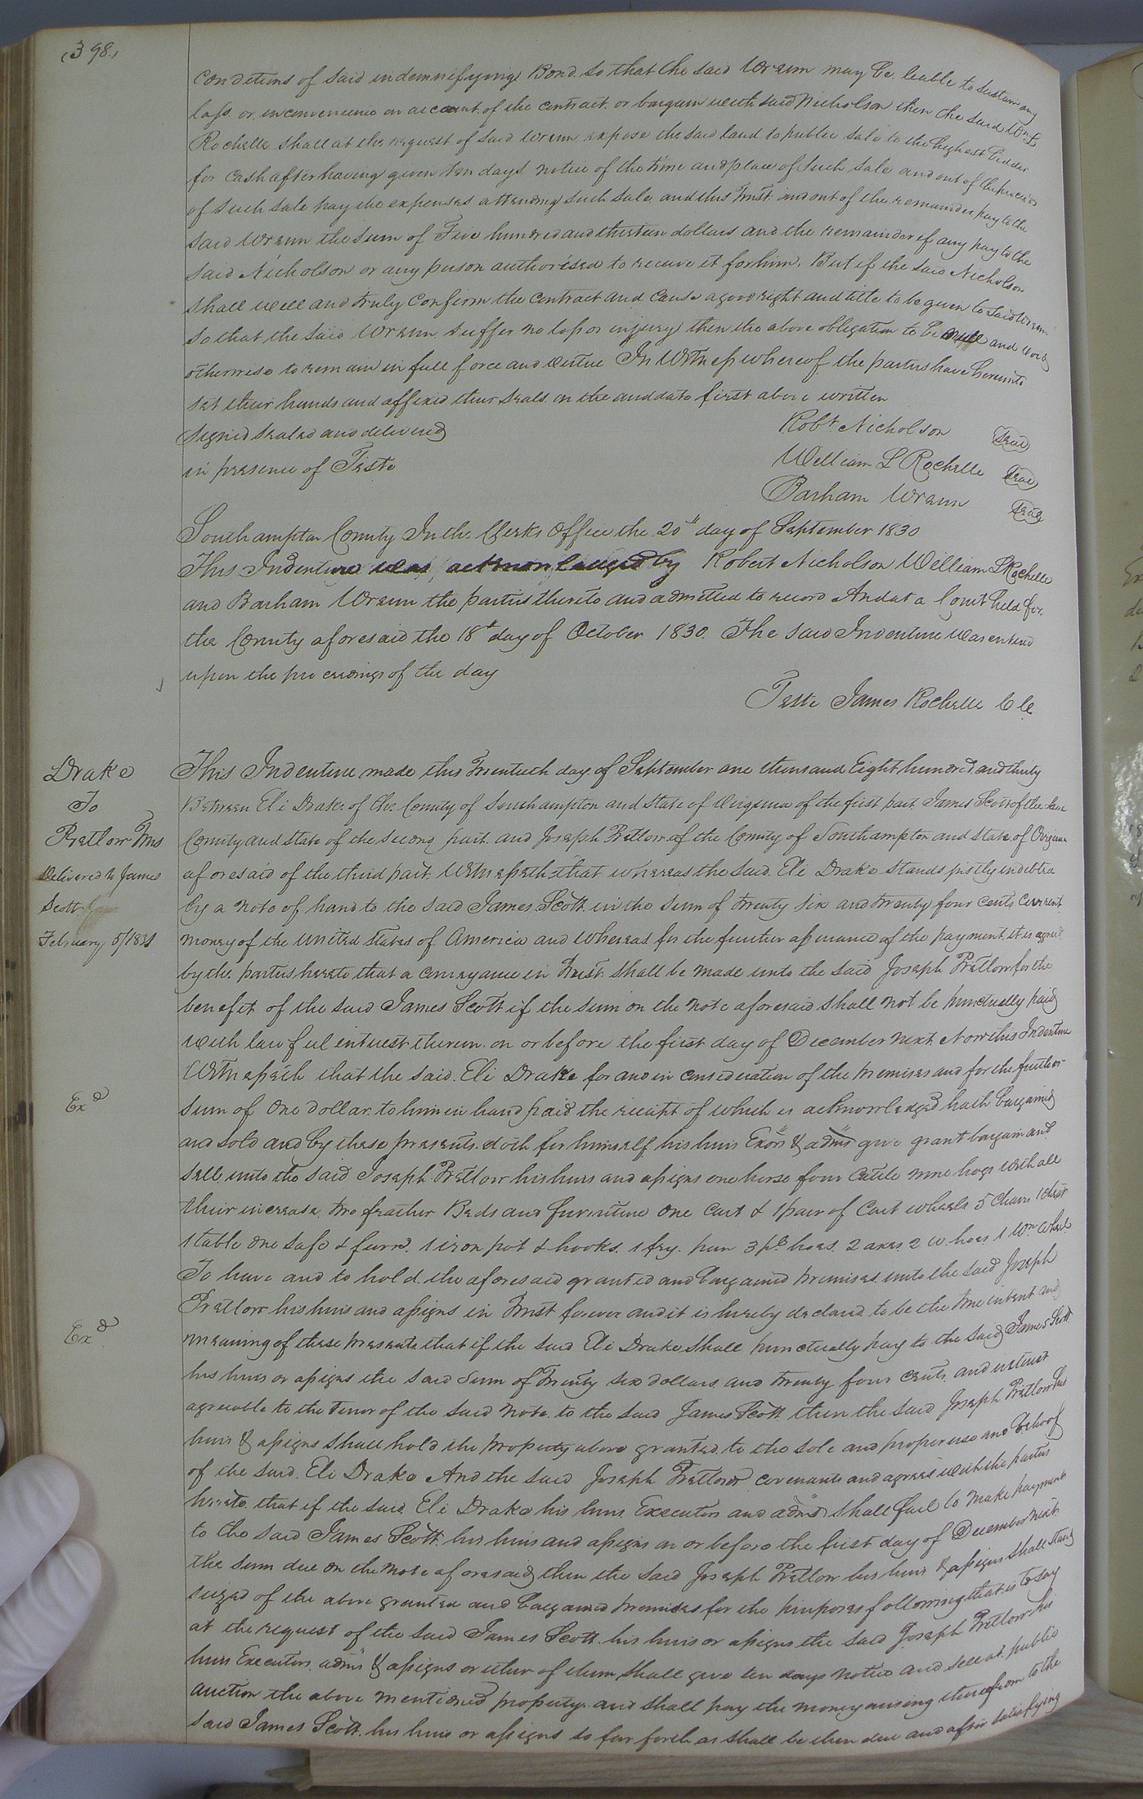 (398)
Conditions of said indemnifying Bond so that the said Wrenn may be liable to sustain any
loss or inconvenience on account of the contract or bargain with said Nicholson then the said Wm L
Rochelle shall at the request of said Wrenn expose the said land to public sale to the highest bidder
for Cash after having given ten days notice of the time and place of such sale and out of the proceeds
of such sale pay the expenses attending such sale and this Trust and out of the remainder pay to the
said Wrenn the sum of Five hundred and thirteen dollars and the remainder if any pay to the
said Nicholson or any person authorised to receive it for him. But if the said Nicholson
shall well and truly Confirm the contract and cause a good right and title to be given to said Wrenn
so that the said Wrenn suffer no loss or injury then the above obligation to be null and void
otherwise to remain in full force and virtue In Witness whereof the parties have hereunto
set their hands and affixed their seals on the and date first above written
Signed sealed and delivered
in presence of Teste
Robt Nicholson Seal
William L Rochelle Seal
Barham Wrenn Seal
Southampton County In the Clerks Office the 20th day of September 1830
This Indenture was acknowledged by Robert Nicholson William L Rochelle
and Barham Wrenn the parties thereto and admitted to record And at a Court held for
the County aforesaid the 18th day of October 1830. The said Indenture was entered
upon the proceedings of the day
Teste James Rochelle C Ck
Drake
To
Pretlow Trus
Delivered to James
Scott
February 5/1831
This Indenture made this Twentieth day of September one thousand Eight hundred and thirty
Between Eli Drake of the County of Southampton and State of Virginia of the first part James Scott of the same
County and state of the second part and Joseph Pretlow of the County of Southampton and State of Virginia
aforesaid of the third part. Witnesseth that whereas the said Eli Drake stands justly indebted
by a note of hand to the said James Scott in the sum of twenty six and twenty four cents Current
money of the United States of America and whereas for the further assurance of the payment it is agreed
by the parties hereto that a conveyance in Trust shall be made unto the said Joseph Pretlow for the
benefit of the said James Scott if the sum on the note aforesaid shall not be punctually paid
with lawful interest thereon on or before the first day of December next Now this Indenture
Witnesseth that the said Eli Drake for and in consideration of the premises and for the further
Exd
sum of One dollar to him in hand paid the receipt of which is acknowledged hath bargained
and sold and by these presents doth for himself his heirs Exors & admrs give grant bargain and
sell unto the said Joseph Pretlow his heirs and assigns one horse four Cattle nine hogs with all
their increase two feather Beds and furniture one Cart & 1 pair of Cart wheels 5 Chairs 1 Chest
1 table one safe & furne. 1 iron pot & hooks. 1 fry. pan 3 ps hoes. 2 axes 2 w. hoes 1 Wn Wheel
To have and to hold the aforesaid granted and bargained premises unto the said Joseph
Pretlow his heirs and assigns in Trust forever and it is hereby declared to be the true intent and
Exd
meaning of these presents that if the said Eli Drake shall punctually pay to the said James Scott
his heirs or assigns the said sum of Twenty six dollars and twenty four cents and interest
agreeable to the Tenor of the said note to the said James Scott then the said Joseph Pretlow his
heirs & assigns shall hold the property above granted to the sole and proper use and behoof
of the said Eli Drake And the said Joseph Pretlow covenants and agrees with the parties
hereto that if the said Eli Drake his heirs Executors and admrs shall fail to make payment
to the said James Scott his heirs and assigns on or before the first day of December next
the sum due on the note aforesaid then the said Joseph Pretlow his heirs & assigns shall stand
seized of the above granted and bargained premises for the purposes following that is to say
at the request of the said James Scott his heirs or assigns the said Joseph Pretlow his
heirs Executors admrs & assigns or either of them shall give ten days notice and sell at public
auction the above mentioned property and shall pay the money arising therefrom to the
said James Scott his heirs or assigns so far forth as shall be then due and after satisfying